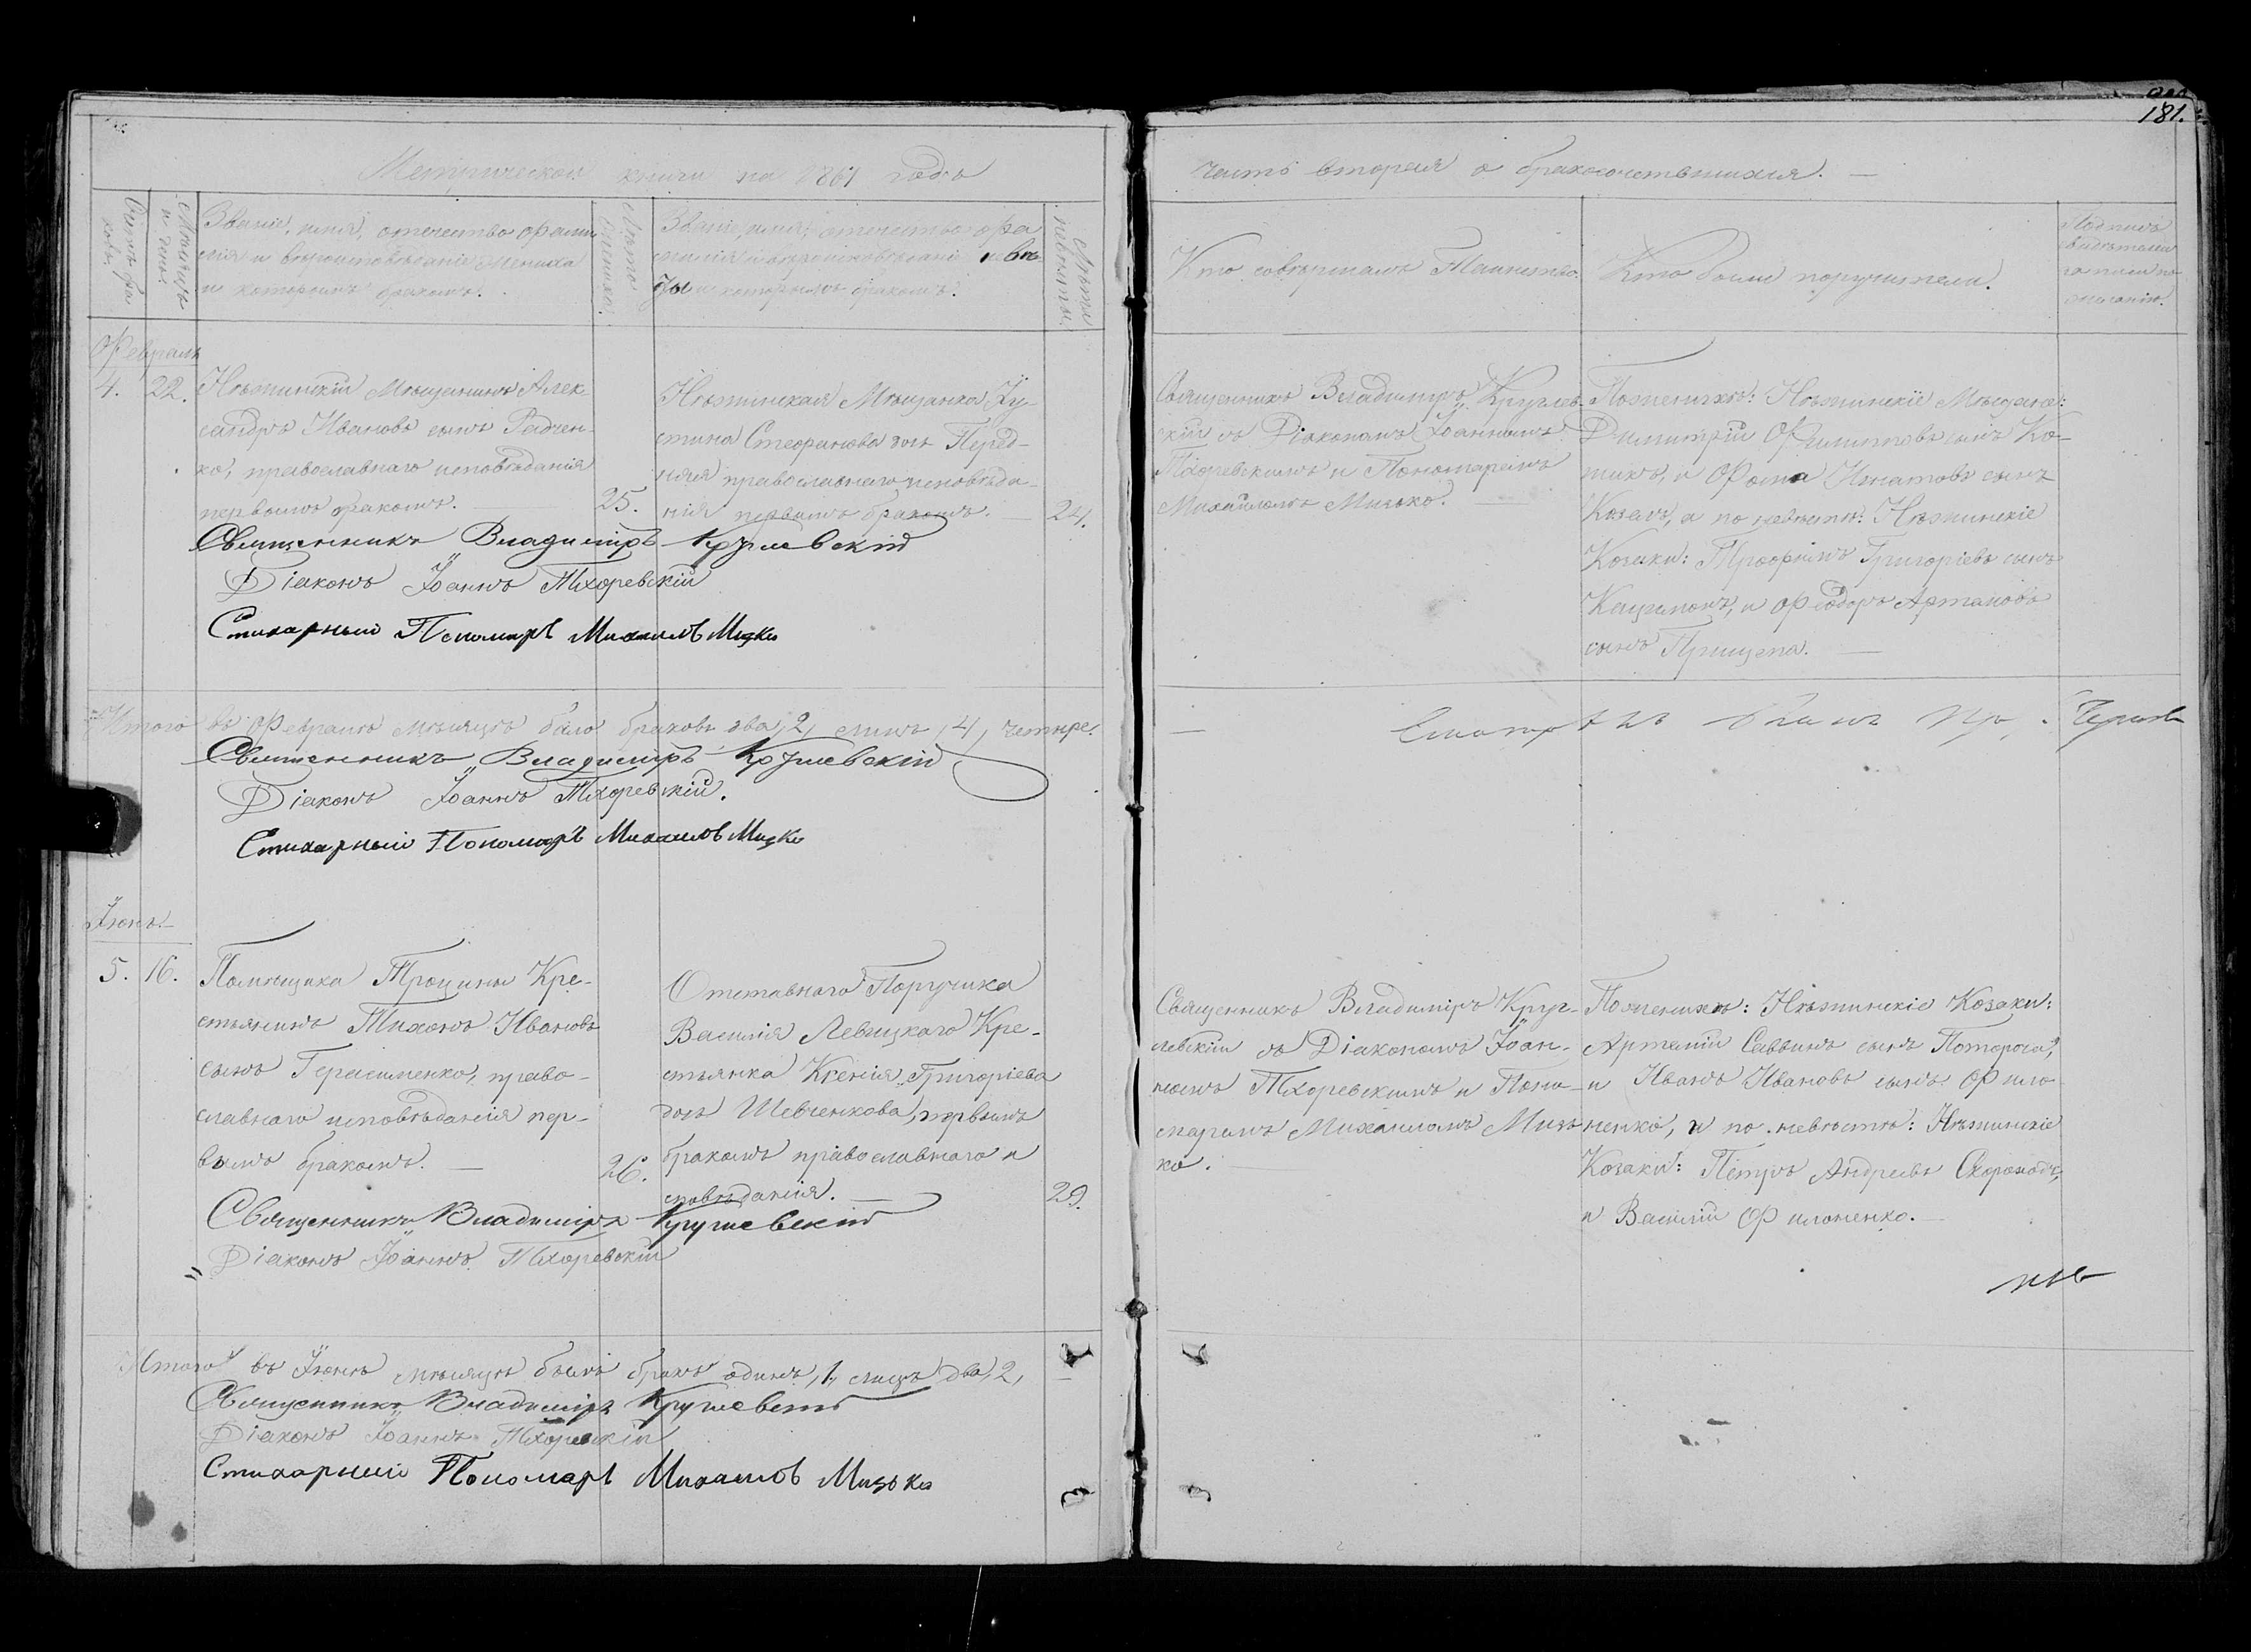 181.
Метрической книги на 1861 годъ
часть вторая о бракосочетавшихся. —
Счетъ бра
ковъ.
Мѣсяцъ
и день
Званіе, имя, отечество, фами
лія и вѣроисповѣданіе жениха
и которымъ бракомъ.
Лѣта
жениха.
Званіе, имя, отечество, фа
милія и вѣроисповѣданіе невѣс
ты и которымъ бракомъ.
Лѣта
невѣсты.
Кто совершалъ Таинство.
Кто были поручители.
Подпись
свидѣтелей
записи по
желанію.
Февраль
4. 22.
Нѣжинскій Мѣщанинъ Алек-
сандръ Ивановъ сынъ Радчен-
ко, православнаго исповѣданія
первымъ бракомъ. —
25.
Нѣжинская Мѣщанка Іу-
стина Стефанова дочь Перед-
няя православнаго исповѣда-
нія первымъ бракомъ. —
24.
Священникъ Владимиръ Круглев-
скій съ Діакономъ Іоанномъ
Тхоревскимъ и Пономаремъ
Михаиломъ Мизько. —
По женихѣ: Нѣжинскіе Мѣщане:
Димитрій Филиповъ сынъ Ко-
тикъ, и Фома Игнатовъ сынъ
Козелъ, а по невѣстѣ: Нѣжинскіе
Козаки: Трофимъ Григоріевъ сынъ
и Феодоръ Артамовъ
сынъ Прищепа. —
Священникъ Владиміръ Круглевскій
Діаконъ Іоаннъ Тхоревскій
Стихарный Пономарь Михаилъ Мизко
Итого въ Февралѣ мѣсяцѣ было браковъ два, 2, лицъ, 4, четыре.
Священникъ Владиміръ Круглевскій
Діаконъ Іоаннъ Тхоревскій.
Стихарный Пономарь Михаилъ Мизко
Іюнь.
5. 16.
Помѣщика Троцины Кре-
стьянинъ Тихонъ Ивановъ
сынъ Герасименко, право-
славнаго исповѣданія пер-
вымъ бракомъ. —
26.
Отставнаго Поручика
Василія Левицкаго Кре-
стьянка Ксенія Григоріева
дочь Шевченкова, первымъ
бракомъ православнаго и
сповѣданія. —
29.
Священникъ Владиміръ Круг-
левскій съ Діакономъ Іоан-
номъ Тхоревскимъ и Поно-
маремъ Михаиломъ Мизь
ко. —
По женихѣ: Нѣжинскіе Козаки:
Артемій Саввинъ сынъ Поторока,
и Иванъ Ивановъ сынъ Фило
ненко, а по невѣстѣ: Нѣжинскіе
Козаки: Петръ Андреевъ Скороходъ,
и Василій Филоненко. —
Священникъ Владиміръ Круглевскій
Діаконъ Іоаннъ Тхоревскій
Итого въ Іюнѣ мѣсяцѣ былъ бракъ одинъ, 1, лицъ два, 2,
Священникъ Владиміръ Круглевскій
Діаконъ Іоаннъ Тхоревскій
Стихарный Пономарь Михаилъ Мизько